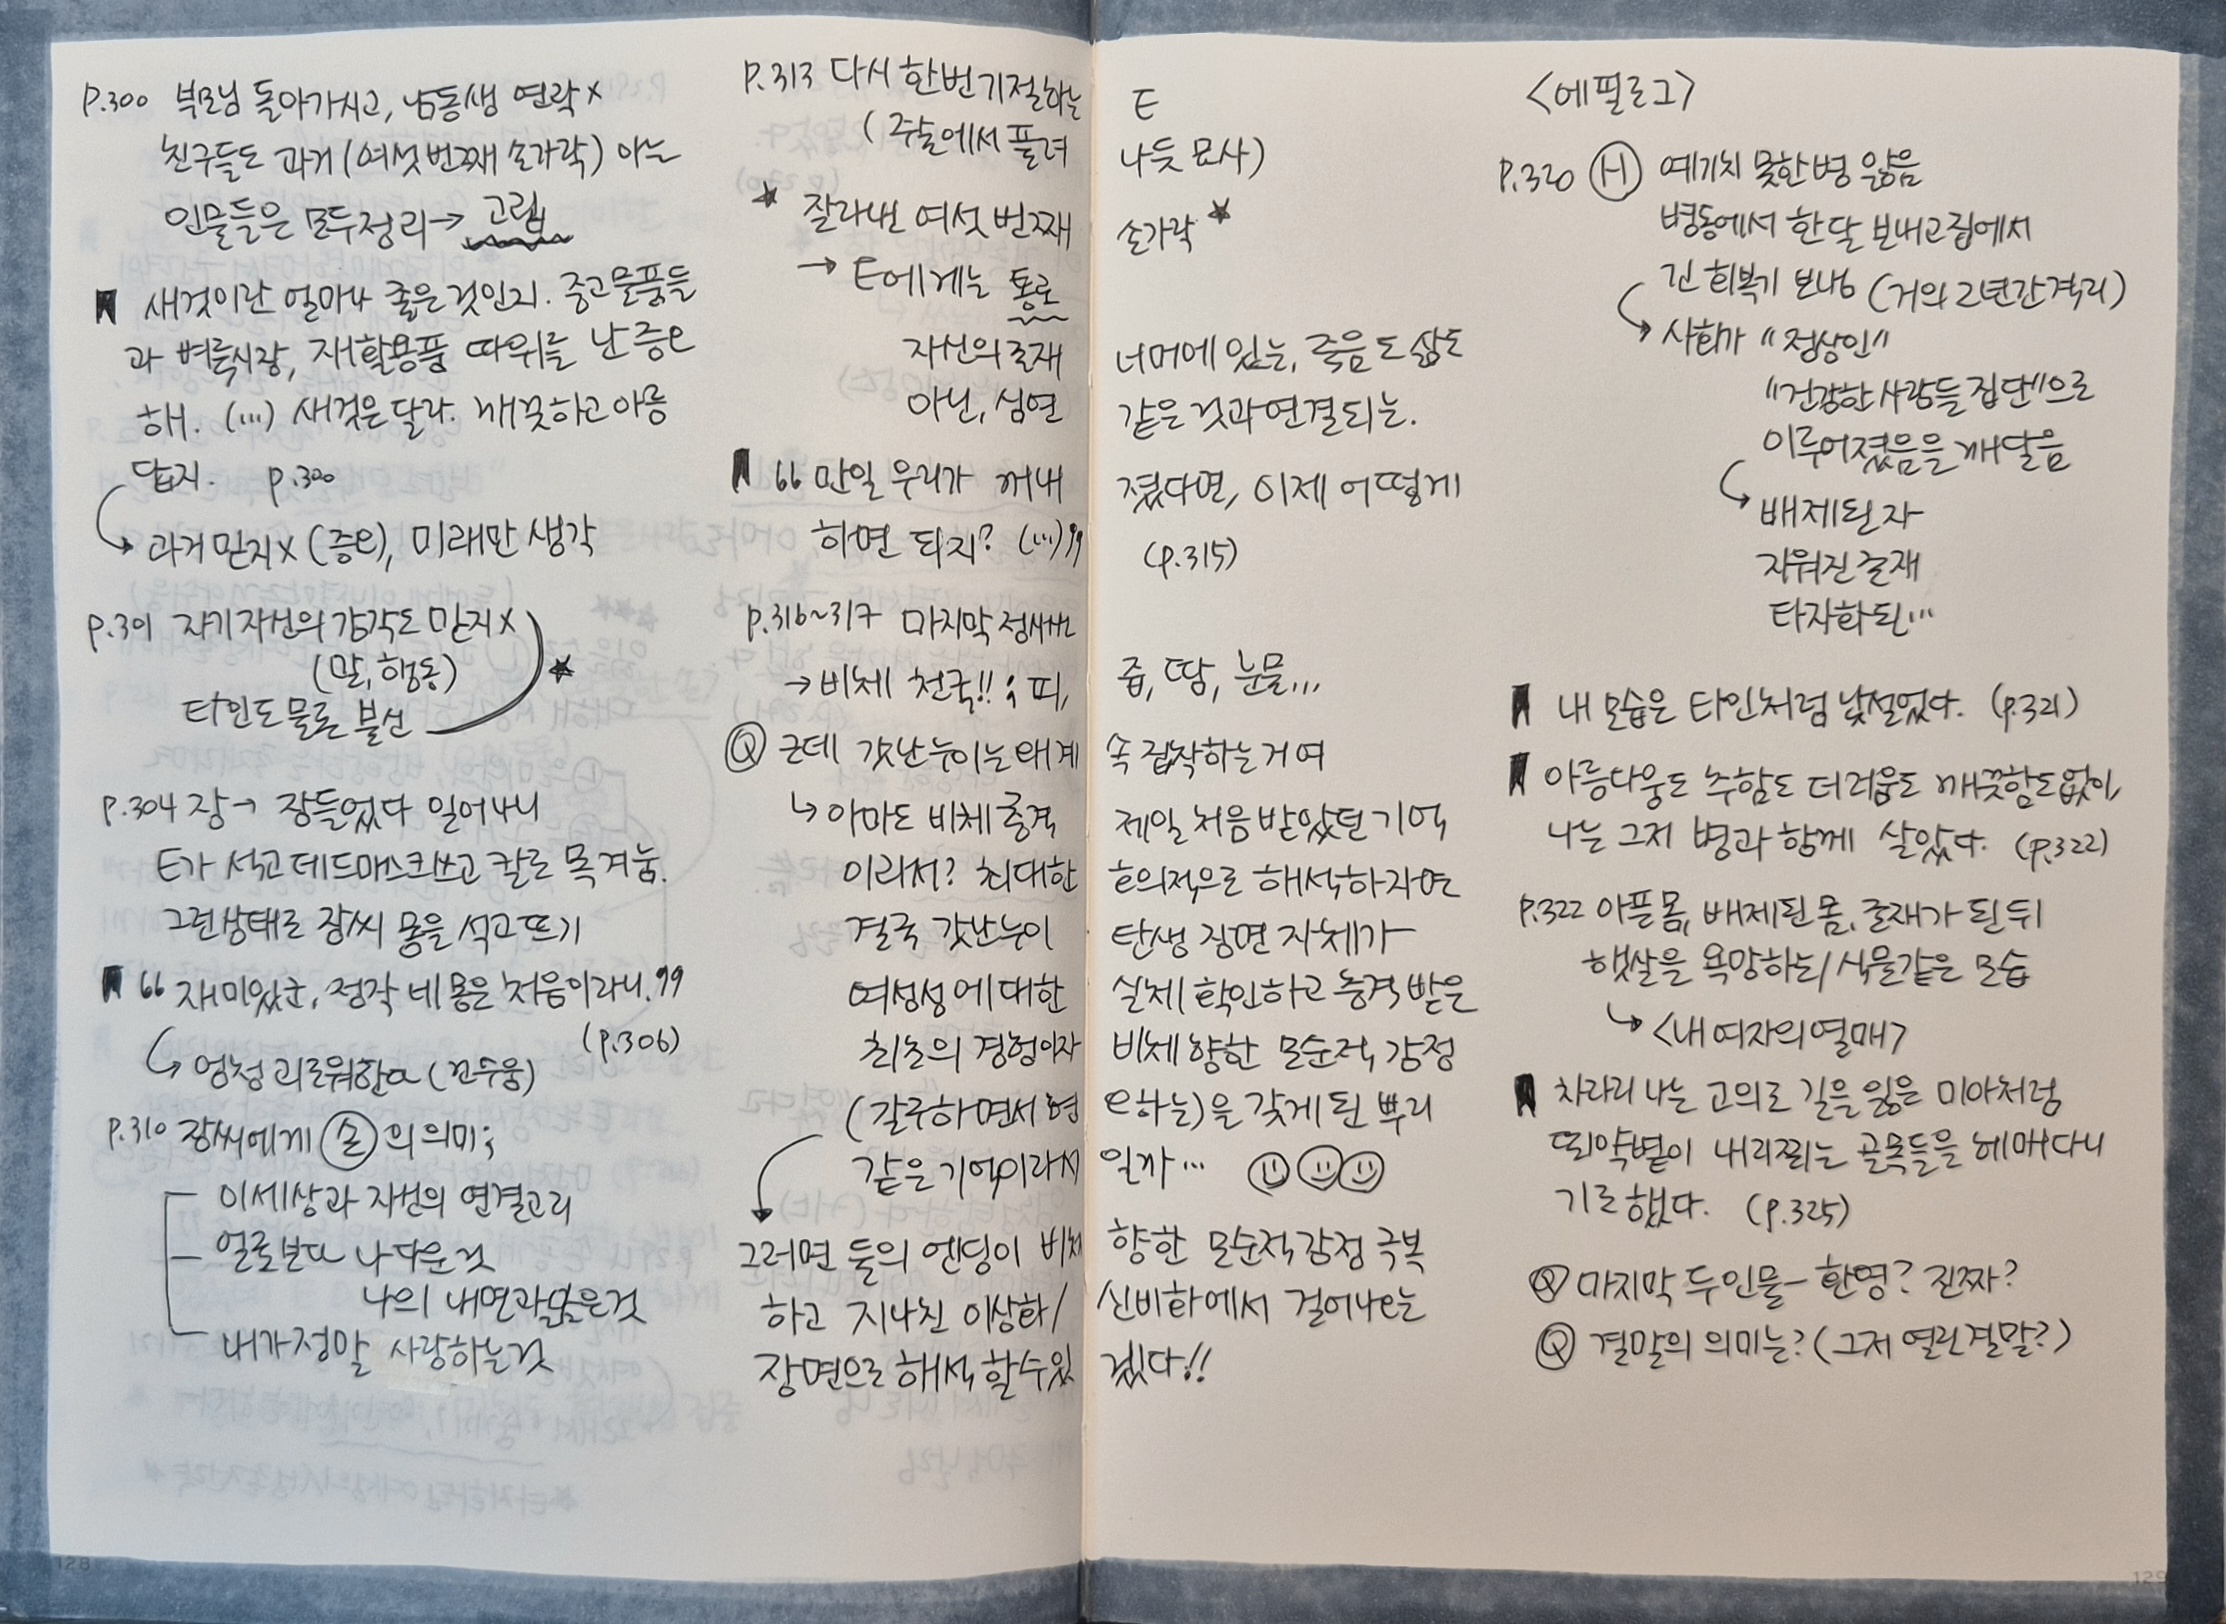 p.300 부모님 돌아가시고, 남동생 연락 x
친구들도 과거 (여섯번째 손가락) 아는
인물들은 모두 정리 → 고립
새것이란 얼마나 좋은 것인지. 중고물품들
과 벼룩시장, 재활용품 따위를 난 증오
해. (...) 새것은 달라. 깨끗하고 아름
답지. p.300
과거 믿지 x (증오), 미래만 생각
p.301 자기 자신의 감각도 믿지 x
(말, 행동)
타인도 물론 불신
p.304 장→ 잠들었다 일어나니
E가 석고 데드마스크 쓰고 칼로 목 겨눔.
그런상태로 장씨 몸을 석고 뜨기
“재미있군, 정작 네 몸은 처음이라니.”
(p.306)
엄청 괴로워한다 (전수웅)
p.310 장씨에게 손의 의미;
이 세상과 자신의 연결고리
얼굴보다 나다운 것
나의 내면과 닮은 것
내가 정말 사랑하는 것
p.313 다시 한번 기절하는 E
(주술에서 풀려나듯 묘사)
★ 잘라낸 여섯 번째 손가락 ★
→ E에게는 통로
자신의 존재 너머에 있는, 죽음도 삶도
아닌, 심연 같은 것과 연결되는.
“만일 우리가 꺼내졌다면, 이제 어떻게
하면 되지? (...)” (p.315)
p.316~317 마지막 정사씬
→ 비체 천국!! ; 피, 즙, 땀, 눈물...
Q 근데 갓난누이는 왜 계속 집착하는 거여
↳ 아마도 비체 충격 제일 처음 받았던 기억
이라서? 최대한 호의적으로 해석하자면
결국 갓난누이 탄생 장면 자체가
여성성에 대한 실제 확인하고 충격 받은
최초의 경험이자 비체 향한 모순적 감정
(갈구하면서 혐오하는)을 갖게 된 뿌리
같은 기억이라서일까...
그러면 둘의 엔딩이 비체 향한 모순적 감정 극복
하고 지나친 이상화/신비화에서 걸어나오는
장면으로 해석할 수 있겠다!!
<에필로그>
p.320 H 예기치 못한 병 앓음
병동에서 한 달 보내고 집에서
긴 회복기 보냄 (거의 2년간 격리)
사회가 “정상인”
“건강한 사람들 집단”으로
이루어졌음을 깨달음
배제된 자
지워진 존재
타자화된...
내 모습은 타인처럼 낯설었다. (p.321)
아름다움도 추함도 더러움도 깨끗함도 없이,
나는 그저 병과 함께 살았다. (p.322)
p.322 아픈 몸, 배제된 몸, 존재가 된 뒤
햇살을 욕망하는/식물같은 모습
↳ <내 여자의 열매>
차라리 나는 고의로 길을 잃은 미아처럼
뙤약볕이 내리쬐는 골목들을 헤매다니
기로 했다. (p.325)
Q 마지막 두 인물 - 환영? 진짜?
Q 결말의 의미는? (그저 열린 결말?)
128
129